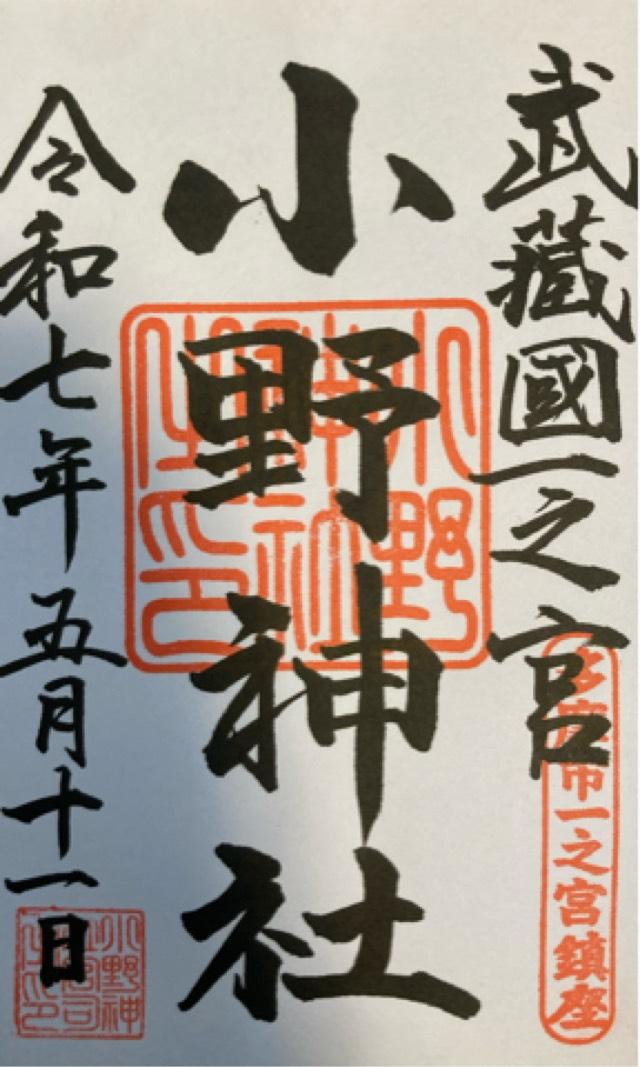 武藏國一之宮
多摩市一之宮鎮座
小野神社
小野神社之印
令和七年五月十一日